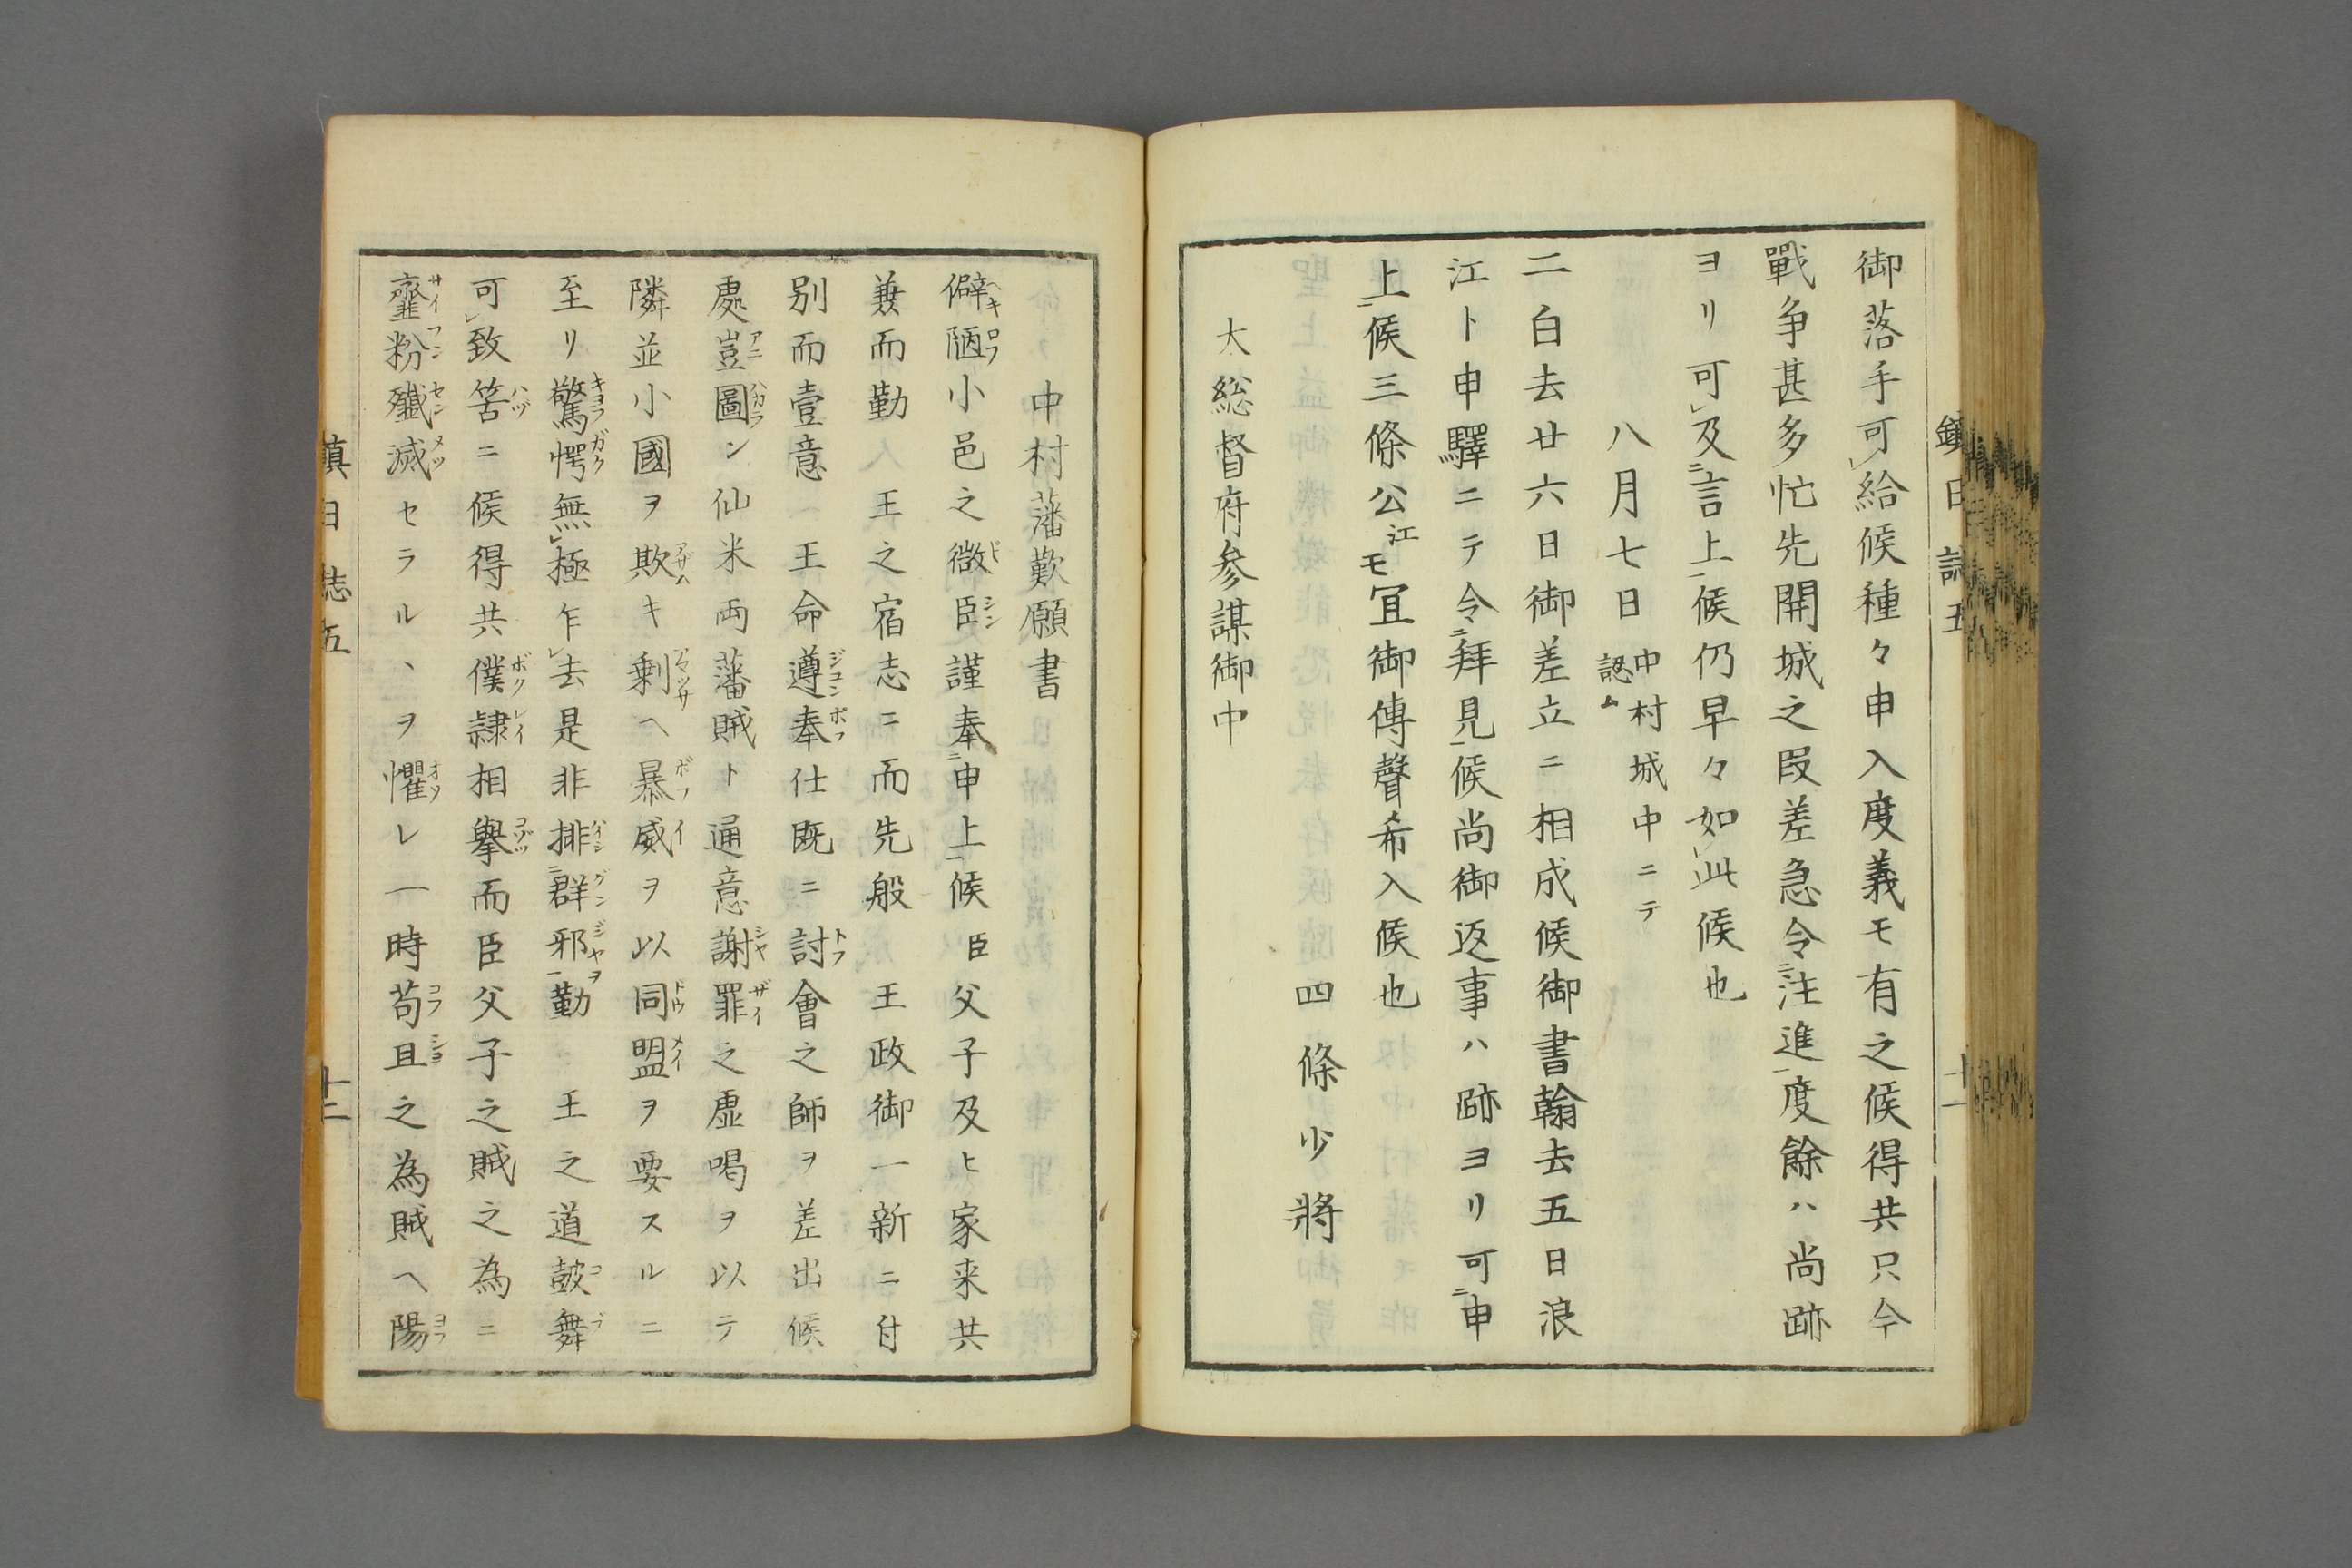 御落手可給候種々申入度義モ有之候得共只今
戰争甚多忙先開城之段差急令注進度餘ハ尚跡
ヨリ可及言上候仍早々如此候也
八月七日 中村城中ニテ認ム
二白去廿六日御差立ニ相成候御書翰去五日浪
江ト申驛ニテ令拜見候尚御返事ハ跡ヨリ可申
上候三條公江モ冝御傳聲希入候也
四條少將
大総督府参謀御中
中村藩歎願書
僻陋小邑之微臣謹奉申上候臣父子及ヒ家来共
兼而勤王之宿志ニ而先般王政御一新ニ付
別而壹意王命遵奉仕既ニ討會之師ヲ差出候
處豈圖ン仙米両藩賊ト通意謝罪之虚喝ヲ以テ
隣並小國ヲ欺キ剰ヘ暴威ヲ以同盟ヲ要スルニ
至リ驚愕無極乍去是非排群邪勤王之道鼓舞
可致筈ニ候得共僕隷相擧而臣父子之賊之為ニ
虀粉殲滅セラルヽヲ懼レ一時苟且之為賊ヘ陽
鎮日誌五
十一
鎮日誌五
十二